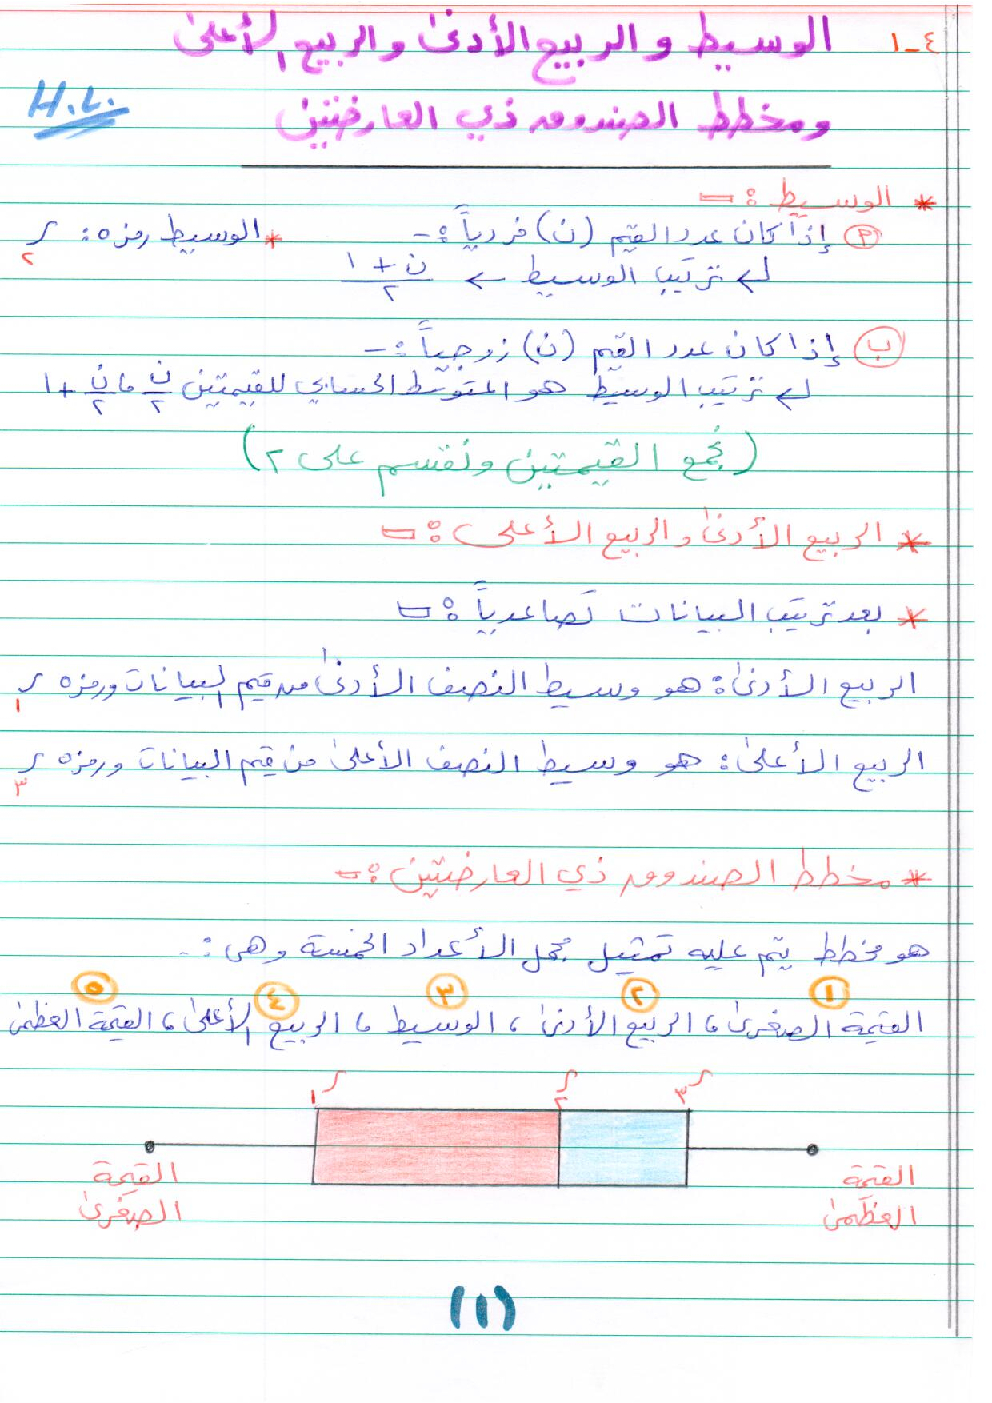 ٤-١ الوسيط والربيع الأدنى والربيع الأعلى
ومخطط الصندوق ذي العارضتين
H.L.
* الوسيط :-
أ إذا كان عدد القيم (ن) فردياً :- * الوسيط رمزه : ر٢
ترتيب الوسيط ← ن + ١ / ٢
ب إذا كان عدد القيم (ن) زوجياً :-
ترتيب الوسيط هو المتوسط الحسابي للقيمتين ن/٢ ، ن/٢ + ١
(نجمع القيمتين ونقسم على ٢)
* الربيع الأدنى والربيع الأعلى :-
* بعد ترتيب البيانات تصاعدياً :-
الربيع الأدنى : هو وسيط النصف الأدنى من قيم البيانات ورمزه ر١
الربيع الأعلى : هو وسيط النصف الأعلى من قيم البيانات ورمزه ر٣
* مخطط الصندوق ذي العارضتين :-
هو مخطط يتم عليه تمثيل مجمل الأعداد الخمسة وهي :-
١ ٢ ٣ ٤ ٥
القيمة الصغرى ، الربيع الأدنى ، الوسيط ، الربيع الأعلى ، القيمة العظمى
ر١ ر٢ ر٣
القيمة الصغرى
القيمة العظمى
(١)